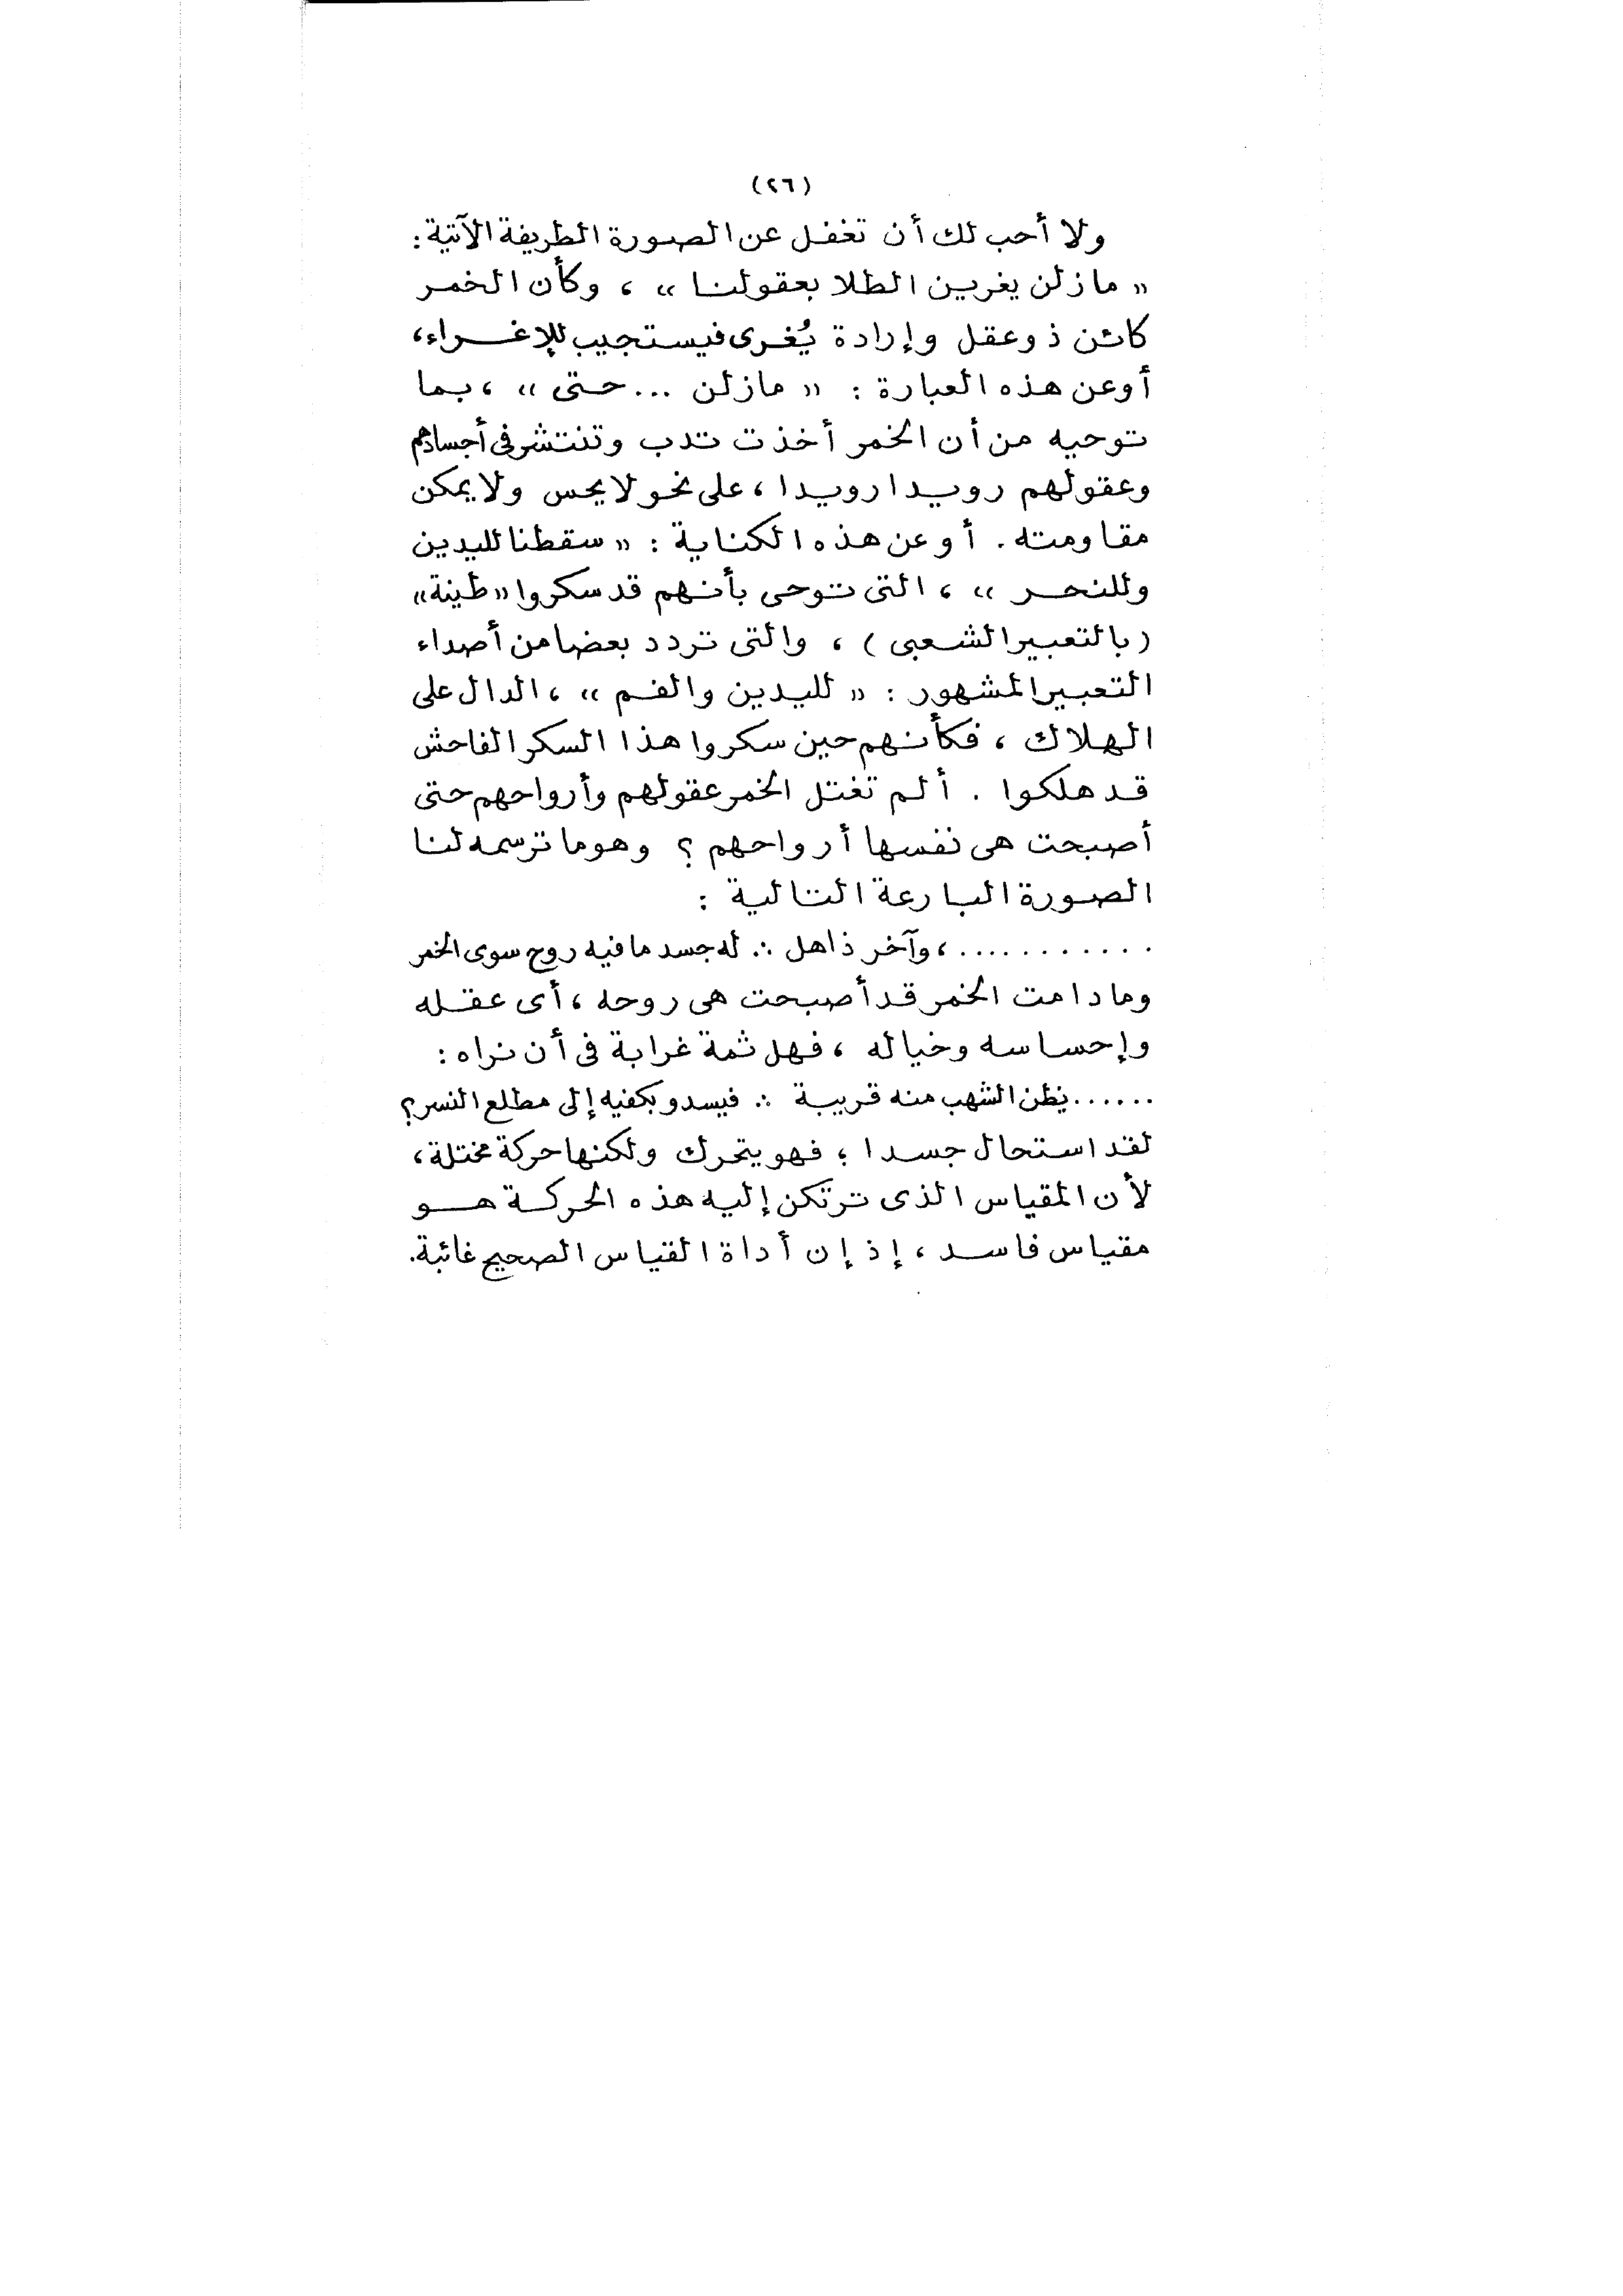 (٢٦)
ولا أحب لك أن تغفل عن الصورة الطريفة الآتية:
« مازلن يغرين الطلا بعقولنا » ، وكأن الخمر
كائن ذو عقل وإرادة يُغرى فيستجيب للإغراء،
أو عن هذه العبارة : « مازلن ... حتى » ، بما
توحيه من أن الخمر أخذت تدب وتنتشر فى أجسادهم
وعقولهم رويدا رويدا ، على نحو لا يحس ولا يمكن
مقاومته . أو عن هذه الكناية : « سقطنا لليدين
وللنحر » ، التى توحى بأنهم قد سكروا «طينة»
(بالتعبير الشعبى) ، والتى تردد بعضا من أصداء
التعبير المشهور : « لليدين والفم » ، الدال على
الهلاك ، فكأنهم حين سكروا هذا السكر الفاحش
قد هلكوا . ألم تغتل الخمر عقولهم وأرواحهم حتى
أصبحت هى نفسها أرواحهم ؟ وهو ما ترسمه لنا
الصورة البارعة التالية :
........... ، وآخر ذاهل ∴ له جسد ما فيه روح سوى الخمر
وما دامت الخمر قد أصبحت هى روحه ، أى عقله
وإحساسه وخياله ، فهل ثمة غرابة فى أن نراه :
...... يظن الشهب منه قريبة ∴ فيسدو بكفيه إلى مطلع النسر؟
لقد استحال جسدا ؛ فهو يتحرك ولكنها حركة مختلة ،
لأن المقياس الذى ترتكن إليه هذه الحركة هو
مقياس فاسد ، إذ إن أداة القياس الصحيح غائبة.